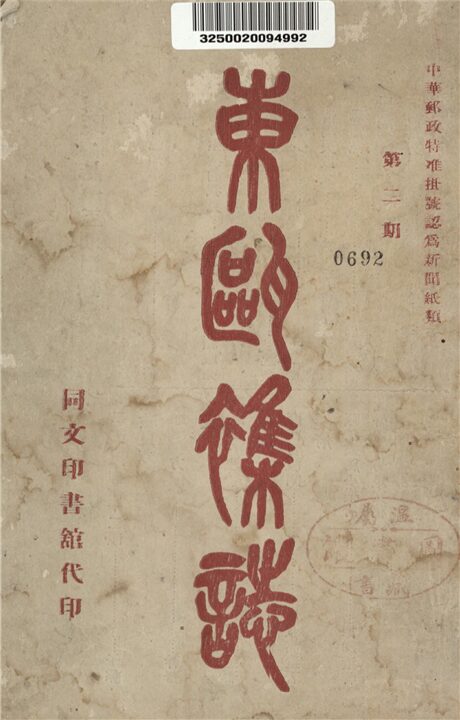 3250020094992
中華郵政特准掛號認爲新聞紙類
第二期
0692
東甌雜誌
同文印書館代印